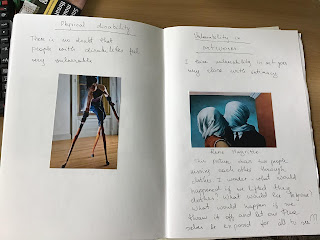 Physical disability
There is no doubt that
people with disabilities feel
very vulnerable
Vulnerability in
I have vulnerability in
very close with intimacy
Rene Magritte
This picture show two people
each other through
clothes. I wonder what would
happened if we lifted they
clothes? What would be
What would happen if we
it off and let our true
selves be exposed for all to see???